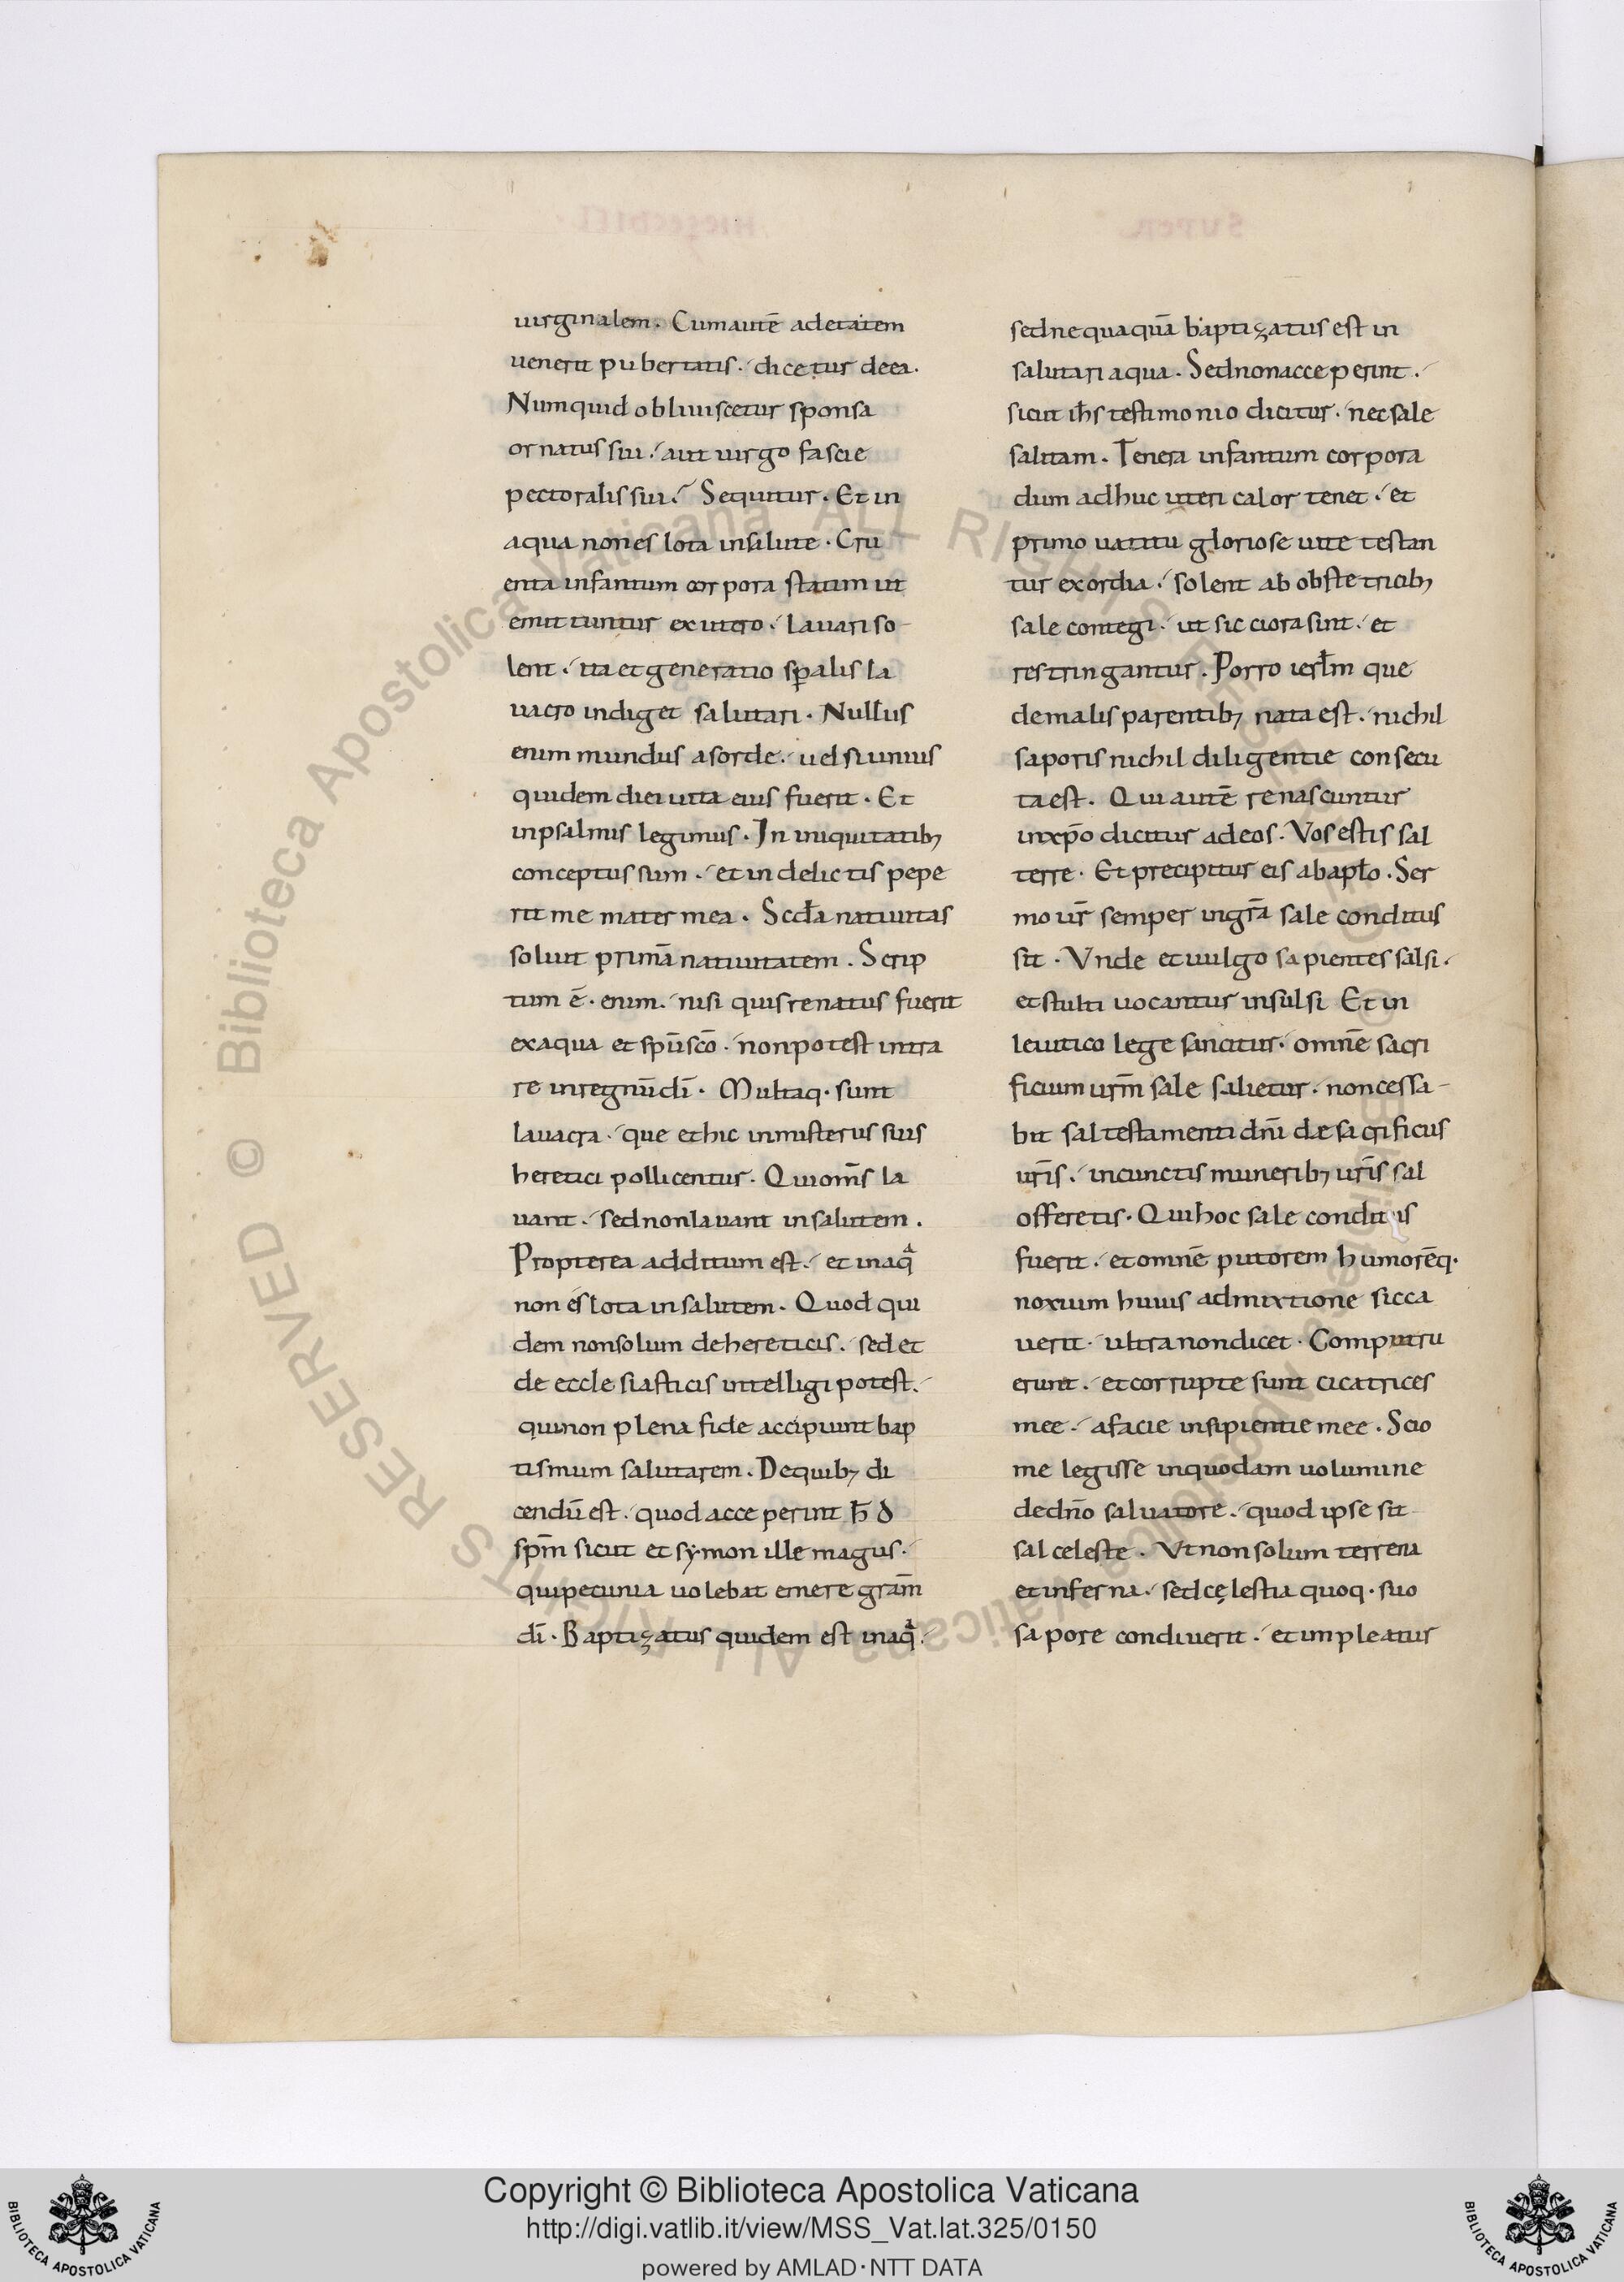 uirginalem. Cumautē adetatem
uenerit pubertatis. dicetur deea.
Numquid obliuiscetur sponsa
ornatus sui. aut uirgo fascie
pectoralis sui. Sequitur. Et in
aqua nones lota insalute. Cru
enta infantium corpora statim ut
emittuntur exutero. lauari so
lent. ita et generatio sp̄alis la
uacro indiget salutari. Nullus
enim mundus asorde. uel si unius
quidem diei uita eius fuerit. Et
inpsalmis legimus. In iniquitatib;
conceptus sum. et in delictis pepe
rit me mater mea. Scd̄a natiuitas
soluit primā natiuitatem. Scrip
tum ē. enim. nisi quis renatus fuerit
exaqua et sp̄uscō. nonpotest intra
re inregnū dī. Multaq. sunt
lauacra. que et hic inmisteriis suis
heretici pollicentur. Qui om̄s la
uant. sed nonlauant insalutem.
Propterea additum est. et inaq̄
non es lota insalutem. Quod qui
dem nonsolum dehereticis. sed et
de ecclesiasticis intelligi potest.
qui non plena fide accipiunt bap
tismum salutarem. Dequib; di
cendū est. quod acceperint h̄ d
sp̄m sicut et symon ille magus.
qui pecunia uolebat emere grām
dī. Baptizatus quidem est inaq̄.
sed nequaquā baptizatus est in
salutari aqua. Sed nonacceperint.
sicut ih̄s testimonio dicitur. nec sale
salitam. Tenera infantium corpora
dum adhuc uteri calor tenet. et
primo uatitu gloriose uite testan
tur exordia. solent ab obstetricib;
sale contegi. ut sic ciora sint. et
restringantur. Porro ierl̄m que
demalis parentib; nata est. nichil
saporis nichil diligentie consecu
ta est. Qui autē renascuntur
inxp̄o dicitur adeos. Vos estis sal
terre. Et precipitur eis abapl̄o. Ser
mo ur̄ semper ingrā sale conditus
sit. Vnde et uulgo sapientes salsi.
et stulti uocantur insulsi Et in
leuitico lege sancitur. omnē sacri
ficium urm̄ sale salietur. non cessa-
bit sal testamenti dn̄i dæ sacrificiis
urīs. incunctis munerib; urīs sal
offeretis. Qui hoc sale conditus
fuerit. et omnē putorem humorēq.
noxium huius admixtione sicca
uerit. ultra non dicet. Computru
erunt. et corrupte sunt cicatrices
mee. afacie insipientie mee. Scio
me legisse inquodam uolumine
dedn̄o saluatore. quod ipse sit
sal celeste. Vt non solum terrena
et inferna. sed cęlestia quoq. suo
sapore condiuerit. et impleatur
Copyright © Biblioteca Apostolica Vaticana
http://digi.vatlib.it/view/MSS_Vat.lat.325/0150
powered by AMLAD·NTT DATA